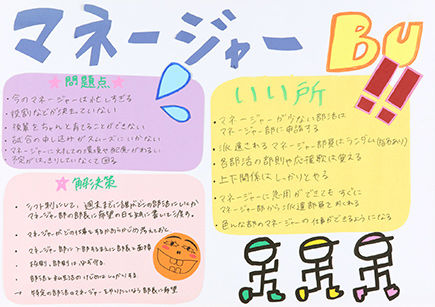 マネージャー Bu
問題点
・今のマネージャーは忙しすぎる
・役割などが決まっていない
・後輩をちゃんと育てることができない
・試合の申し込みがスムーズにいかない
・マネージャーに対しての
予定がはっきりしていなくて困る
解決策
・シフト制にして、週末までに誰がどの部活にいくか
マネージャー部の部長に希望の日を紙に書いて渡す。
・マネージャーがどの仕事をするか
・マネージャー部に入部するまえに部長と面接
・部活と私生活の
→特定の部活のマネージャーをやりたいなら部長に希望
いい所
・マネージャーが少ない部活は
マネージャー部に申請する
・派遣されるマネージャー部員はランダム
・各部活の部則や応援歌は覚える
・上下関係はしっかりとやる
・マネージャーに急用ができてもすぐに
マネージャー部から派遣部員でおくれる
・色んな部のマネージャーの仕事ができるようになる